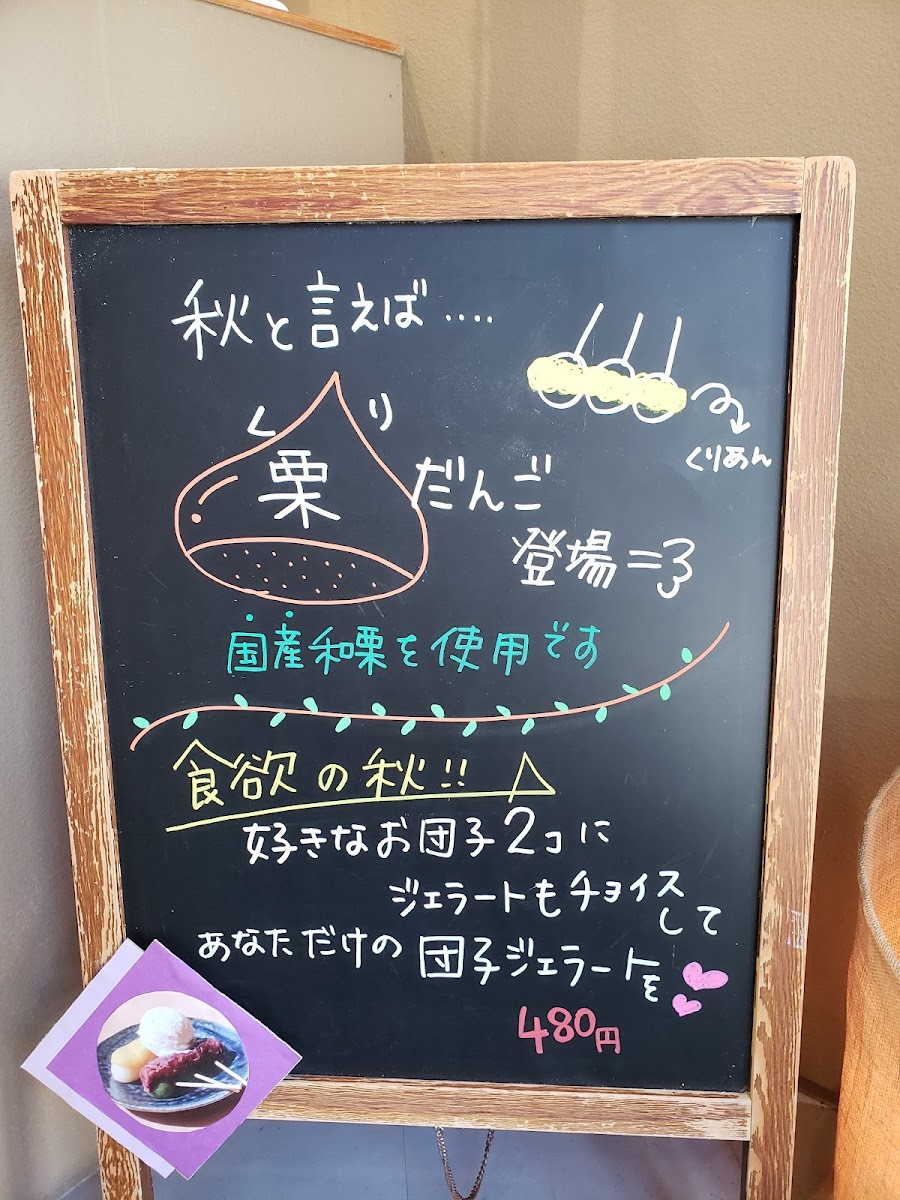 秋と言えば‥‥
くりあん
くり
栗だんご
登場=3
国産和栗を使用です
食欲の秋!!
好きなお団子2コに
ジェラートもチョイス
して
あなただけの団子ジェラートを
480円